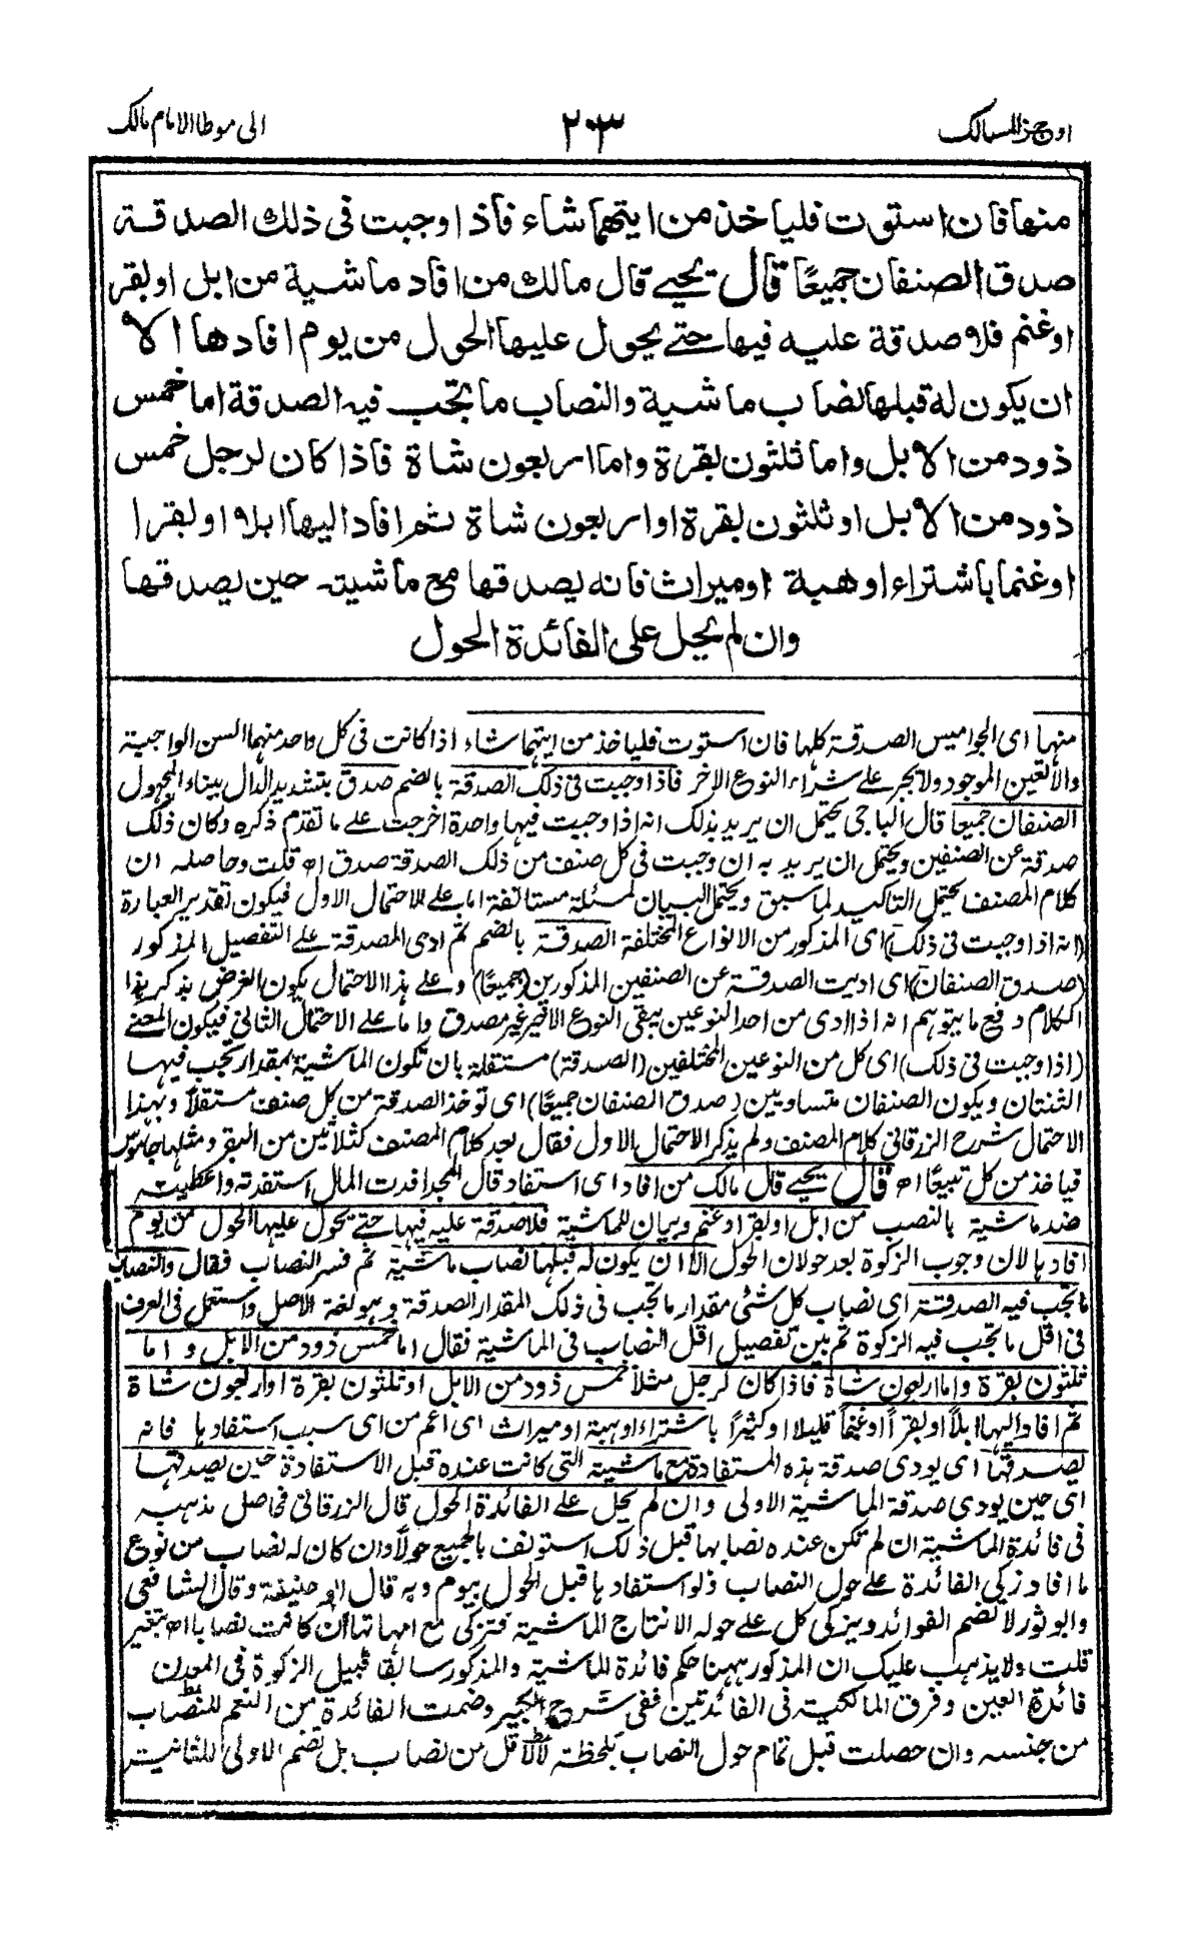 اوجز المسالك
٢٠٣
الى موطا الامام مالك
منها فان استوت فلياخذ من ايتهما شاء فاذا وجبت فى ذلك الصدقة
صدق الصنفان جميعًا قال يحيے قال مالك من افاد ماشية من ابل او بقر
او غنم فلا صدقة عليه فيها حتے يحول عليها الحول من يوم افادها الا
ان يكون له قبلها نصاب ماشية والنصاب ما تجب فيه الصدقة اما خمس
ذود من الابل واما ثلثون بقرة واما اربعون شاة فاذا كان لرجل خمس
ذود من الابل او ثلثون بقرة او اربعون شاة ثم افاد اليها ابلا او بقرا
او غنما باشتراء او هبة او ميراث فانه يصدقها مع ماشيته حين يصدقها
وان لم يحل على الفائدة الحول
منها اى الجواميس الصدقة كلها فان استوت فلياخذ من ايتهما شاء اذا كانت فى كل واحد منهما السن الواجبة
والا تعين الموجود ولا يجبر على شراء النوع الاخر فاذا وجبت فى ذلك الصدقة بالضم صدق بتشديد الدال ببناء المجهول
الصنفان جميعا قال الباجى يحتمل ان يريد بذلك انه اذا وجبت فيها واحدة اخرجت على ما تقدم ذكره وكان ذلك
صدقة عن الصنفين ويحتمل ان يريد به ان وجبت فى كل صنف من ذلك الصدقة صدق اه قلت وحاصله ان
كلام المصنف يحتمل التاكيد لما سبق ويحتمل البيان لمسئلة مستانفة اما على الاحتمال الاول فيكون تقدير العبارة
(انه اذا وجبت فى ذلك) اى المذكور من الانواع المختلفة الصدقة بالضم ثم ادى المصدقة على التفصيل المذكور
(صدق الصنفان) اى اديت الصدقة عن الصنفين المذكورين (جميعًا) وعلى هذا الاحتمال يكون الغرض بذكر هذا
الكلام دفع ما يتوهم انه اذا ادى من احد النوعين يبقى النوع الاخير غير مصدق واما على الاحتمال الثانى فيكون المعنے
(اذا وجبت فى ذلك) اى كل من النوعين المختلفين (الصدقة) مستقلة بان تكون الماشية بمقدار تجب فيها
الثنتان ويكون الصنفان متساويين (صدق الصنفان جميعًا) اى توخذ الصدقة من كل صنف مستقلاً وبهذا
الاحتمال شرح الزرقانى كلام المصنف ولم يذكر الاحتمال الاول فقال بعد كلام المصنف كثلاثين من البقر ومثلها جاموس
فياخذ من كل تبيعًا اه قال يحيے قال مالك من افاد اى استفاد قال المجد افدت المال استفدته واعطيته
ضد ماشية بالنصب من ابل او بقر او غنم وبيان للماشية فلا صدقة عليه فيها حتے يحول عليها الحول من يوم
افادها لان وجوب الزكوة بعد حولان الحول الا ان يكون له قبلها نصاب ماشية ثم فسر النصاب فقال والنصاب
ما تجب فيه الصدقة اى نصاب كل شئى مقدار ما تجب فى ذلك المقدار الصدقة وهو لغة الاصل واستعمل فى العرف
فى اقل ما تجب فيه الزكوة ثم بين تفصيل اقل النصاب فى الماشية فقال اما خمس ذود من الابل و اما
ثلثون بقرة واما اربعون شاة فاذا كان لرجل مثلا خمس ذود من الابل او ثلثون بقرة او اربعون شاة
ثم افاد اليها ابلاً او بقراً او غنماً قليلا او كثيرًا باشتراء او هبة او ميراث اى اعم من اى سبب استفادها فانه
يصدقها اى يودى صدقة هذه المستفادة مع ماشيته التى كانت عنده قبل الاستفادة حين يصدقها
اى حين يودى صدقة الماشية الاولى وان لم يحل على الفائدة الحول قال الزرقانى فحاصل مذهبه
فى فائدة الماشية ان لم تكن عنده نصابها قبل ذلك استونف بالجميع حولاً وان كان له نصاب من نوع
ما افاد زكى الفائدة على حول النصاب ولو استفادها قبل الحول بيوم وبه قال ابو حنيفة وقال الشافعى
وابو ثور لا تضم الفوائد ويزكى كل على حوله الا نتاج الماشية فتزكى مع امهاتها ان كانت نصابا اه بتغير
قلت ولا يذهب عليك ان المذكور ههنا حكم فائدة الماشية والمذكور سابقا قبيل الزكوة فى المعدن
فائدة العين وفرق المالكية فى الفائدتين ففى شرح الكبير وضمت الفائدة من النعم للنصاب
من جنسه وان حصلت قبل تمام حول النصاب بلحظة لا لاقل من نصاب بل تضم الاولى للثانية